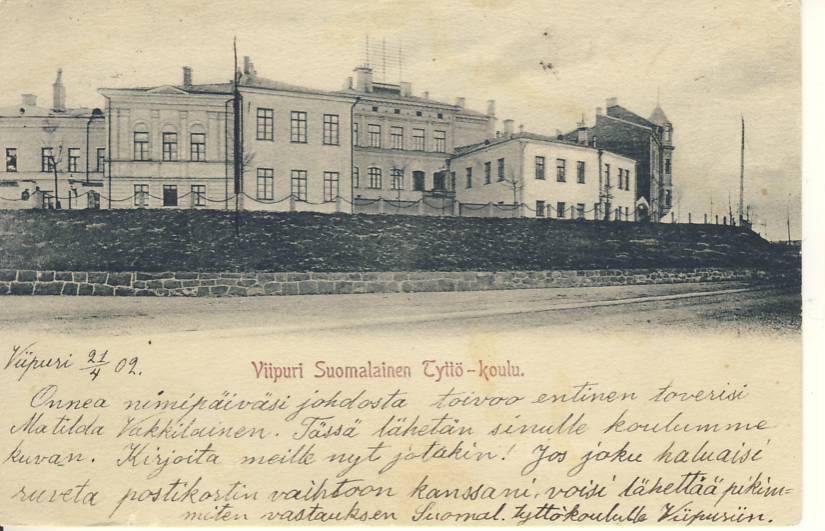 Viipuri 21/4 02.
Viipuri Suomalainen Tyttö-koulu.
Onnea nimipäiväsi johdosta toivoo entinen toverisi
Matilda Vakkilainen. Tässä lähetän sinulle koulumme
kuvan. Kirjoita meille nyt jotakin! Jos joku haluaisi
ruveta postikortin vaihtoon kanssani, voisi lähettää pikim=
miten vastauksen Suomal. tyttökoululle Viipuriin.